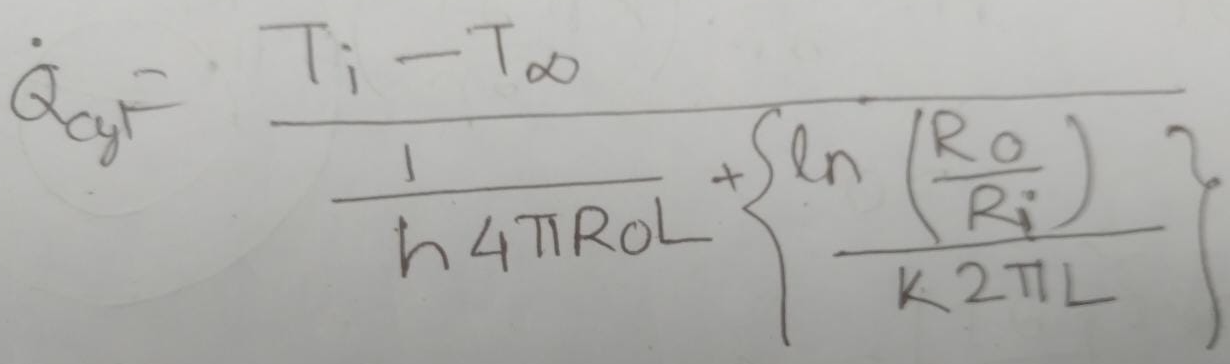 Q̇cyl = (Ti − T∞) / (1 / (h4πRoL) + {ln(Ro/Ri) / (K2πL)})